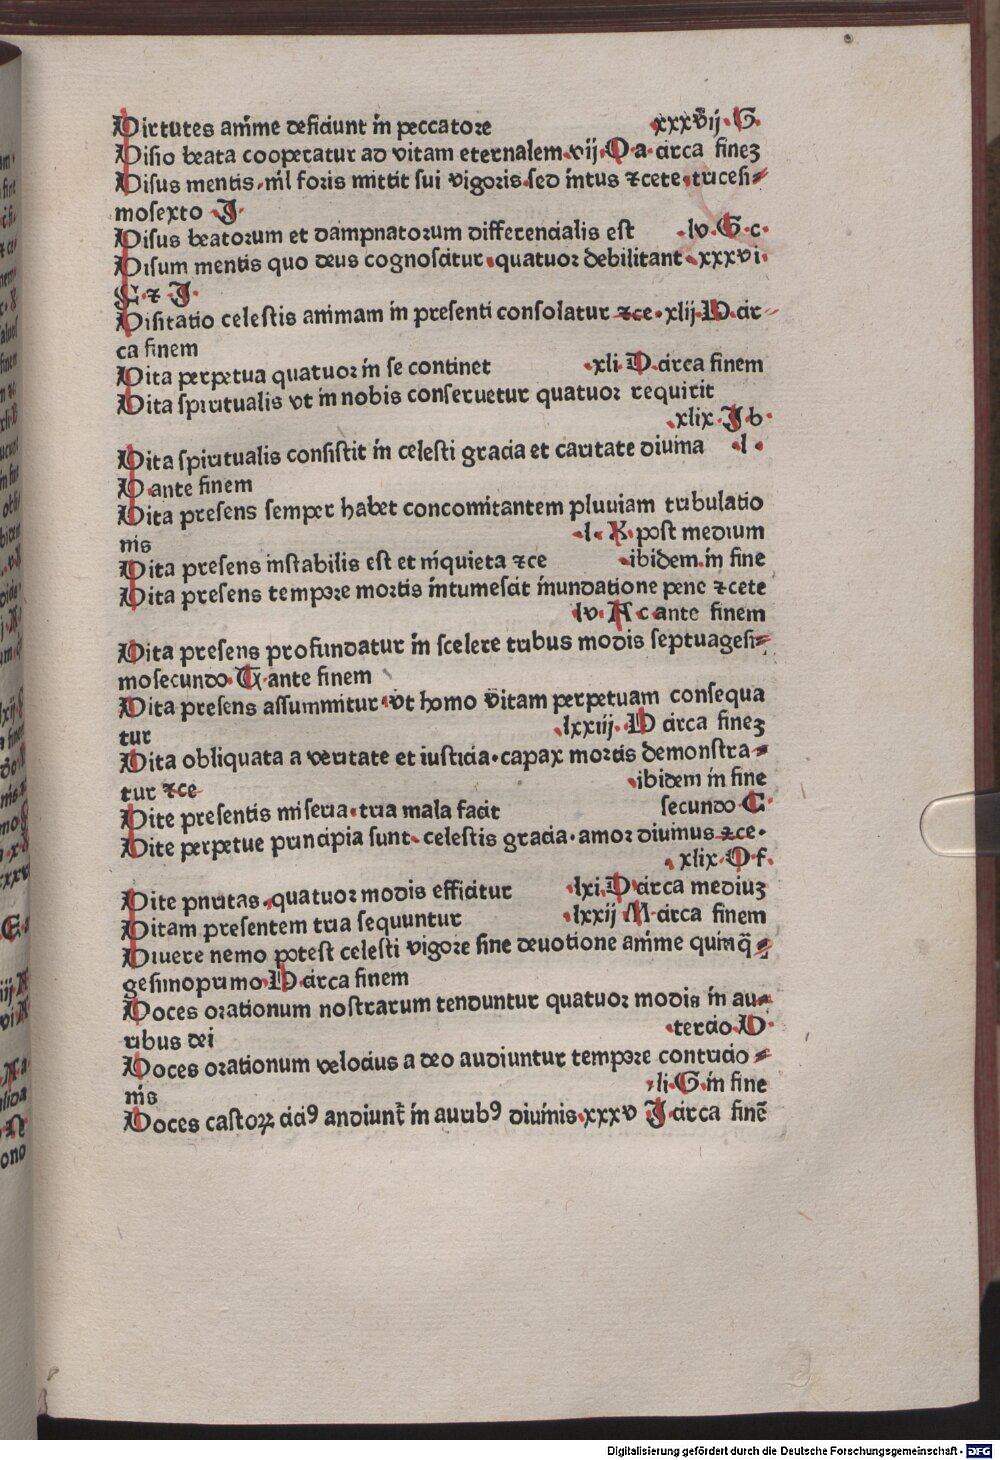 Virtutes anīme deficiunt in peccatore xxxvij·G·
Visio beata cooperatur ad vitam eternalem·vij·O·a·circa finez
Visus mentis·nīl foris mittit sui vigoris·sed intus ⁊cete·tricesi⸗
mosexto·J·
Visus beatorum et dampnatorum differencialis est ·lv·G·c·
Visum mentis quo deus cognoscitur·quatuor debilitant·xxxvi·
C·⁊ J·
Visitatio celestis animam in presenti consolatur ⁊ce·xlij·D·cir⸗
ca finem
Vita perpetua quatuor in se continet ·xli·D·circa finem
Vita spiritualis vt in nobis conseruetur quatuor requirit
·xlix·J b·
Vita spiritualis consistit in celesti gracia et caritate diuina ·l·
D·ante finem
Vita presens semper habet concomitantem pluuiam tribulatio
nis ·l·K·post medium
Vita presens instabilis est et inquieta ⁊ce ·ibidem·in fine
Vita presens tempore mortis intumescit inundatione pene ⁊cete
lv·A c ante finem
Vita presens profundatur in scelere tribus modis septuagesi⸗
mosecundo·G·ante finem
Vita presens assummitur·vt homo vitam perpetuam consequa
tur ·lxxiij·D circa finez
Vita obliquata a veritate et iusticia·capax mortis demonstra⸗
tur ⁊ce ·ibidem in fine
Vite presentis miseria·tria mala facit secundo·C·
Vite perpetue principia sunt·celestis gracia·amor diuinus ⁊ce·
·xlix·O·f·
Vite pnritas·quatuor modis efficitur ·lxi·D·circa mediuz
Vitam presentem tria sequuntur ·lxxij·M·circa finem
Viuere nemo potest celesti vigore sine deuotione anīme quinq̄⸗
gesimoprimo·D·circa finem
Voces orationum nostrarum tenduntur quatuor modis in au⸗
ribus dei ·tercio·D·
Voces orationum velocius a deo audiuntur tempore contricio⸗
nis ·li·G·in fine
Voces castoꝝ citiꝰ andiunt᷑ in auribꝰ diuinis·xxxv J·circa finē
Digitalisierung gefördert durch die Deutsche Forschungsgemeinschaft · DFG